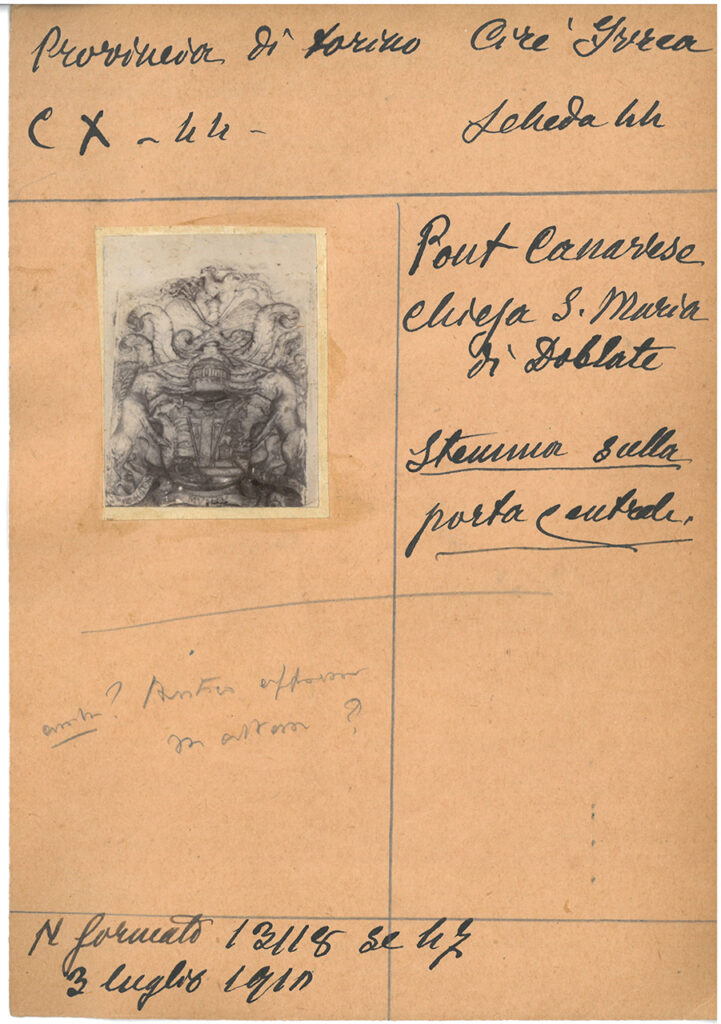 Provincia di Torino Ciré Ivrea
C X - 44 - Scheda 44
Pont Canavese
Chiesa S. Maria
di Doblate
Stemma sulla
porta centrale.
N formato 13/18 se 47
3 luglio 1910